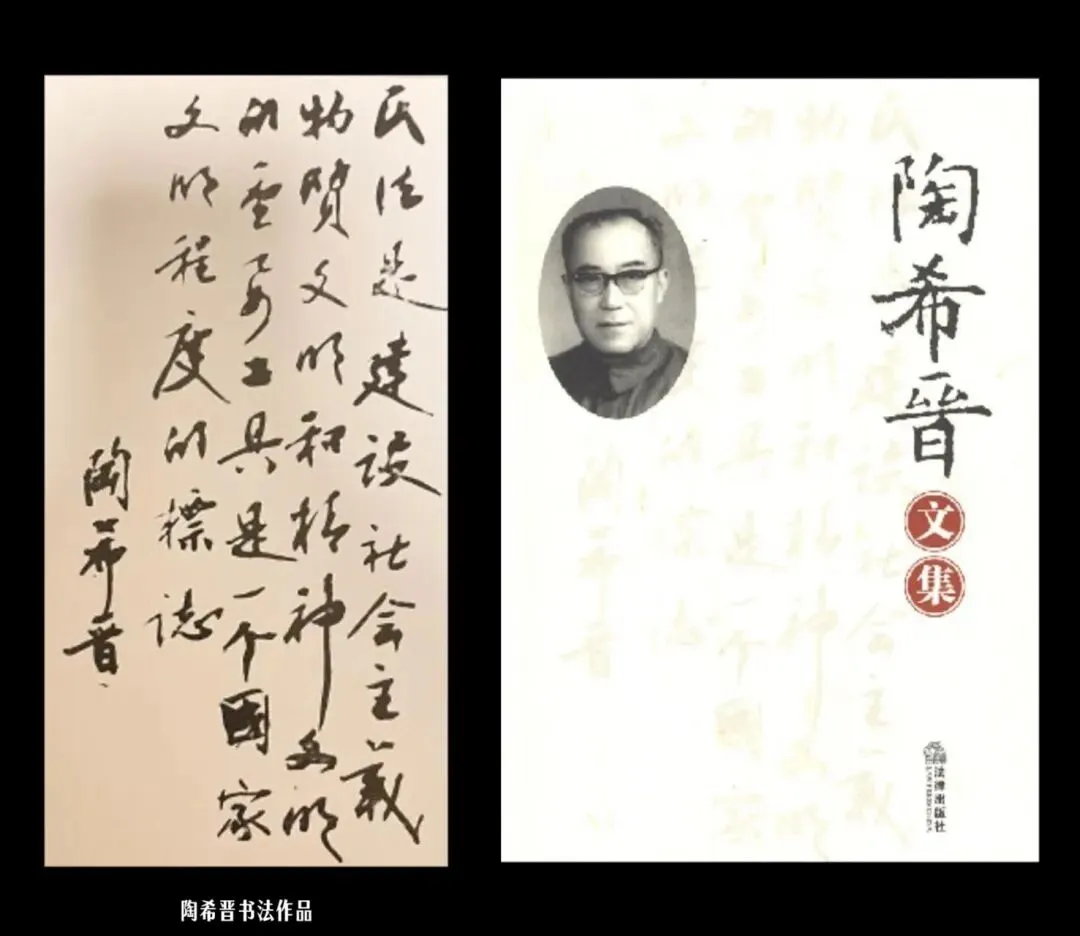 民法是建设社会主義
物質文明和精神文明
的重要工具是一个國家
文明程度的標誌
陶希晋
陶希晋
文集
法律出版社
陶希晋书法作品